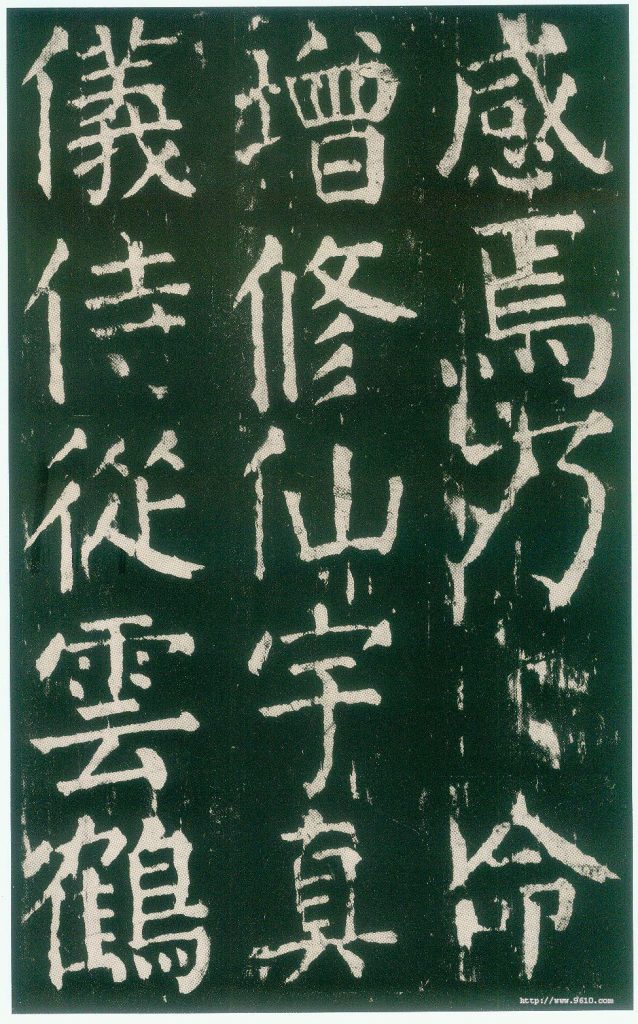 感焉乃命
增修仙宇真
儀侍從雲鶴
http://www.9610.com